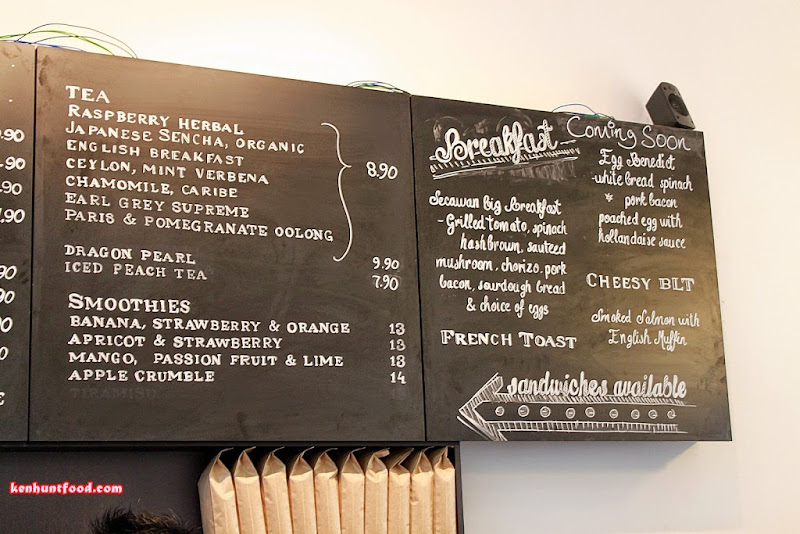 .90
.90
.90
.90
90
TEA
RASPBERRY HERBAL
JAPANESE SENCHA, ORGANIC
ENGLISH BREAKFAST
CEYLON, MINT VERBENA
CHAMOMILE, CARIBE
EARL GREY SUPREME
PARIS & POMEGRANATE OOLONG
8.90
DRAGON PEARL 9.90
ICED PEACH TEA 7.90
SMOOTHIES
BANANA, STRAWBERRY & ORANGE 13
APRICOT & STRAWBERRY 13
MANGO, PASSION FRUIT & LIME 13
APPLE CRUMBLE 14
TIRAMISU
Breakfast Coming Soon
Secawan Big Breakfast
- Grilled tomato, spinach
hashbrown, sauteed
mushroom, chorizo, pork
bacon, sourdough bread
& choice of eggs
FRENCH TOAST
Egg Benedict
-white bread spinach
* pork bacon
poached egg with
hollandaise sauce
CHEESY BLT
Smoked Salmon with
English Muffin
sandwiches available
kenhuntfood.com